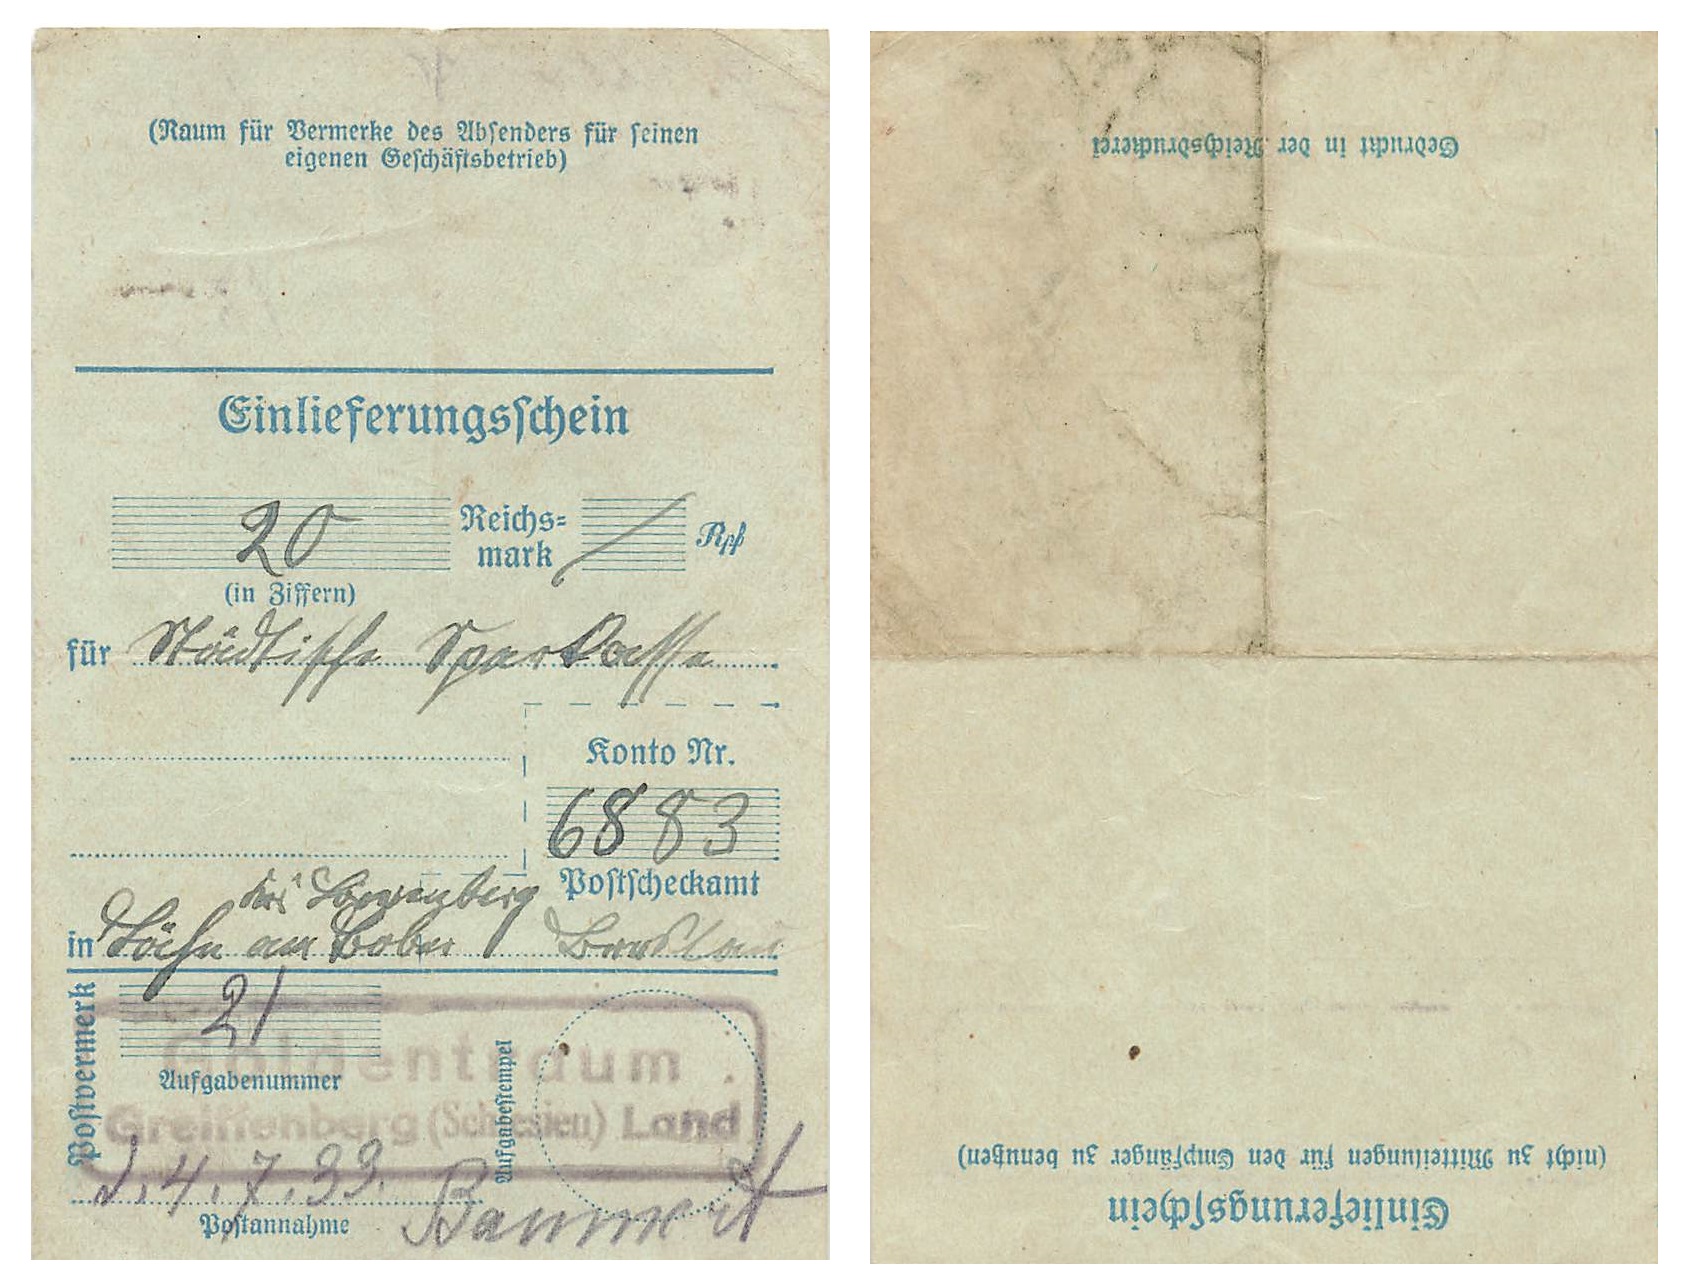 (Raum für Vermerke des Absenders für seinen
eigenen Geschäftsbetrieb)
Einlieferungsschein
20 Reichs=
mark Rpf
(in Ziffern)
für Städtische Sparkasse
Konto Nr.
6883
Postscheckamt
Krs Löwenberg
in Lähn am Bober Breslau
Postvermerk
21
Aufgabenummer
Aufgabestempel
Goldentraum
Greiffenberg (Schlesien) Land
d. 4. 7. 39.
Postannahme
Baumert
Gedruckt in der Reichsdruckerei
(nicht zu Mitteilungen für den Empfänger zu benutzen)
Einlieferungsschein